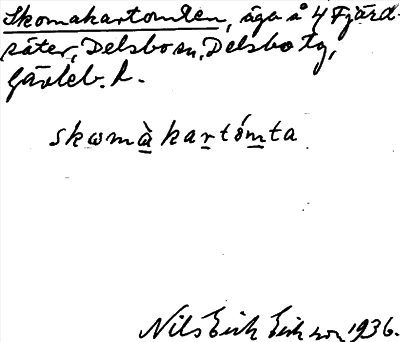 Skomakartomten, äga å 4 Fjärd-
säter, Delsbo sn, Delsbo tg,
Gävleb. l.
skωmà̲ kar̲tóm̲ta
Nils Erik Erikson 1936.